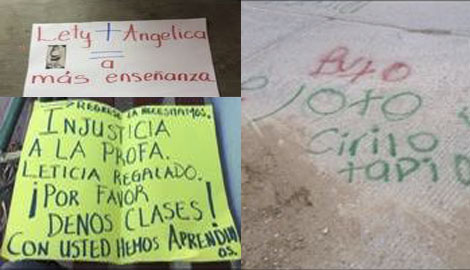 Lety + Angelica
=
a
más enseñanza
REGRESE LA NECESITAMOS.
INJUSTICIA
A LA PROFA.
LETICIA REGALADO.
¡POR FAVOR
DENOS CLASES!
CON USTED HEMOS APRENDIDO
OS.
Puto
Joto
Cirilo
tapi